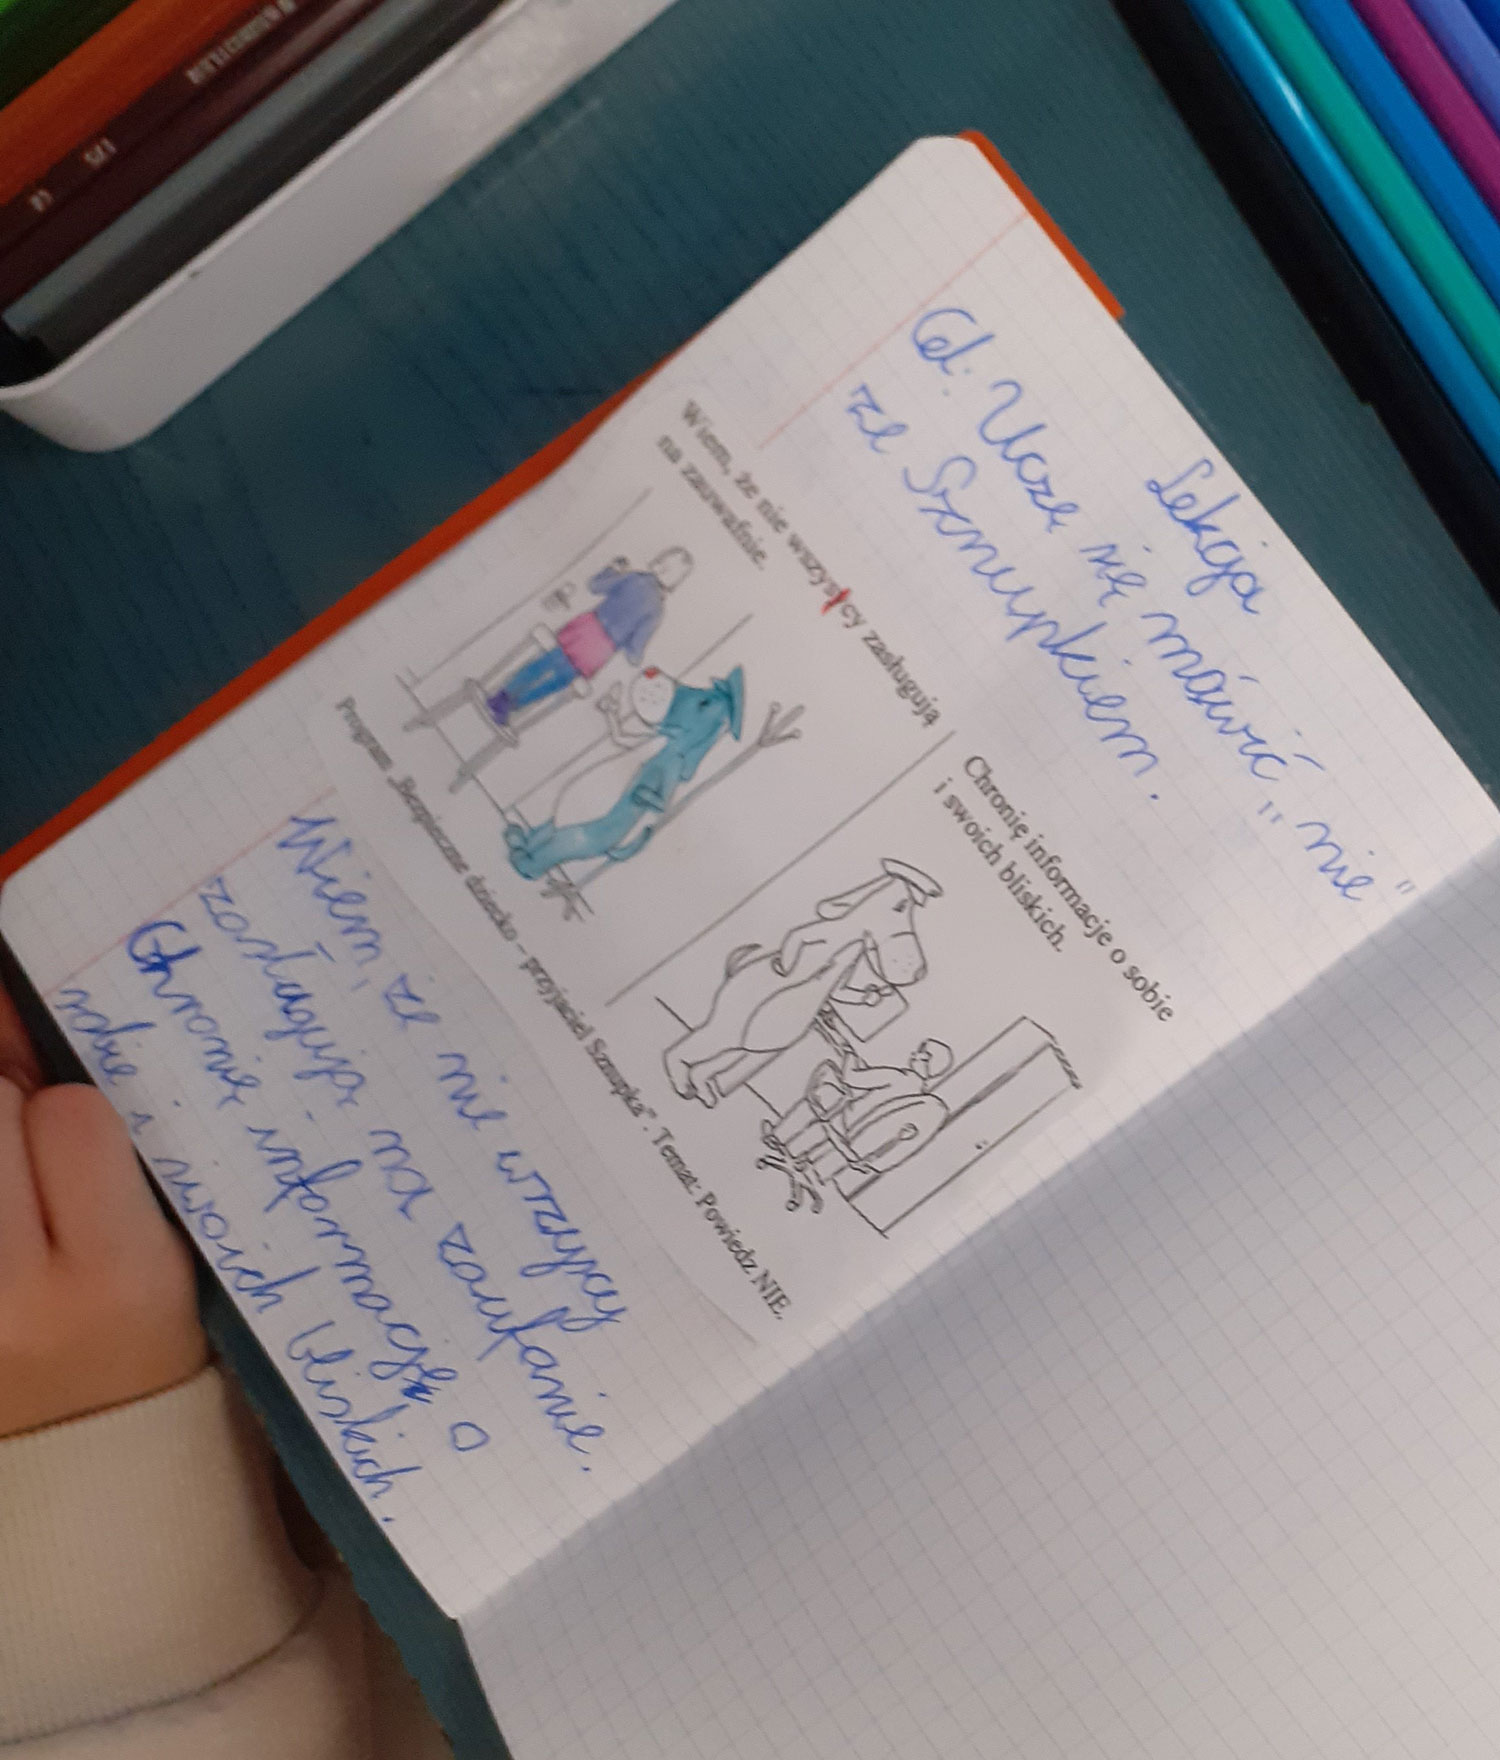 Lekcja
Cel: Uczę się mówić "nie"
ze Sznupkiem.
Wiem, że nie wszyscy zasługują
na zauwafnie.
Chronię informacje o sobie
i swoich bliskich.
Program „Bezpieczne dziecko – przyjaciel Sznupka". Temat: Powiedz NIE.
Wiem, że nie wszyscy
zasługują na zaufanie.
Chronię informację o
sobie i swoich bliskich.